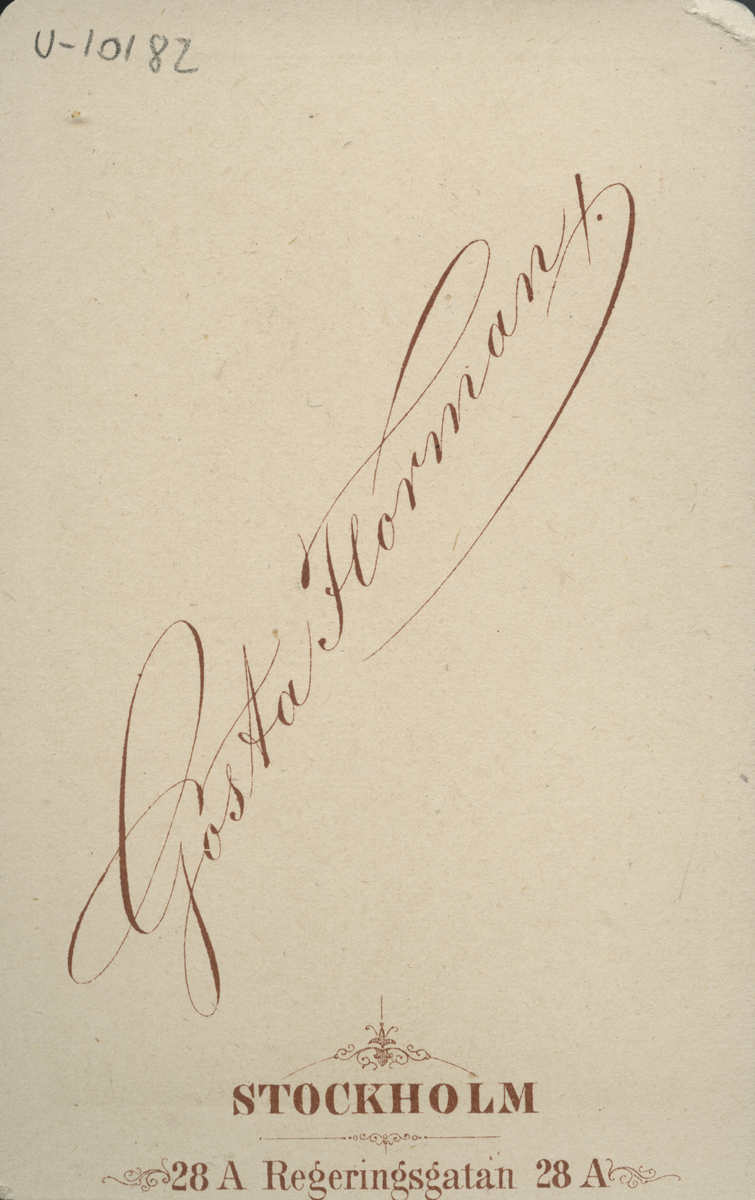 U-10182
Gösta Florman.
STOCKHOLM
28 A Regeringsgatan 28 A